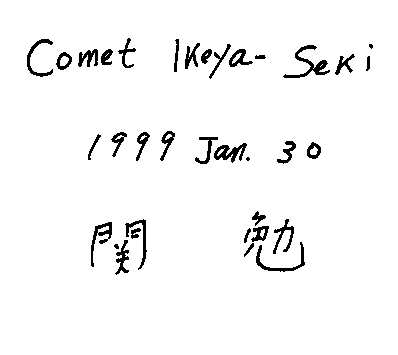 Comet Ikeya-Seki
1999 Jan. 30
関 勉